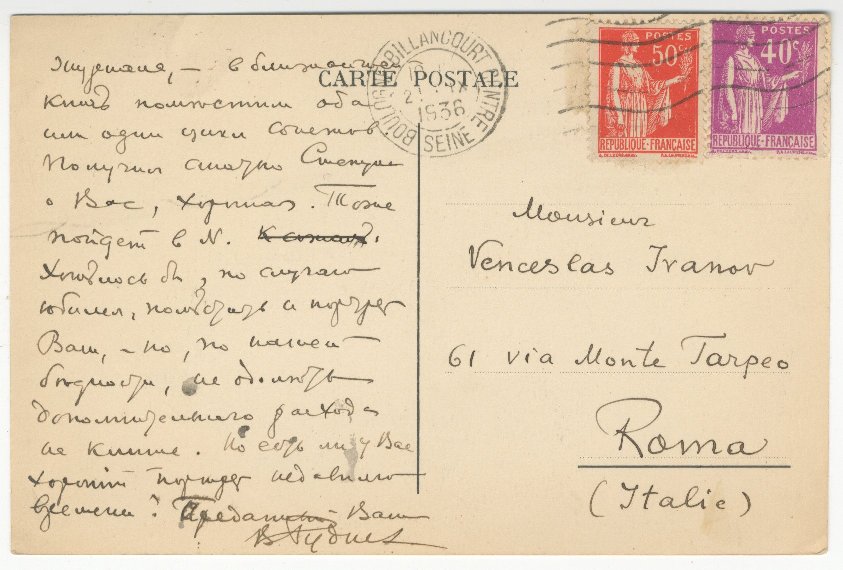 журнала, – в ближайшей
CARTE POSTALE
книгѣ помѣстим оба
или один цикл сонетов
Получил статью Степуна
о Вас, хорошая. Тоже
пойдет в N.
Хотѣлось бы, по случаю
юбилея, помѣстить и портрет
Ваш, – но, по нашей
бѣдности, не одолѣть
дополнительного расхода
на клише. Но есть ли у Вас
хороший портрет недавнего
времени? Преданный Вам
В Руднев
BILLANCOURT CENTRE
1936
SEINE
POSTES
50c
REPUBLIQUE-FRANÇAISE
POSTES
40c
REPUBLIQUE-FRANÇAISE
Monsieur
Venceslas Ivanov
61 via Monte Tarpeo
Roma
(Italie)